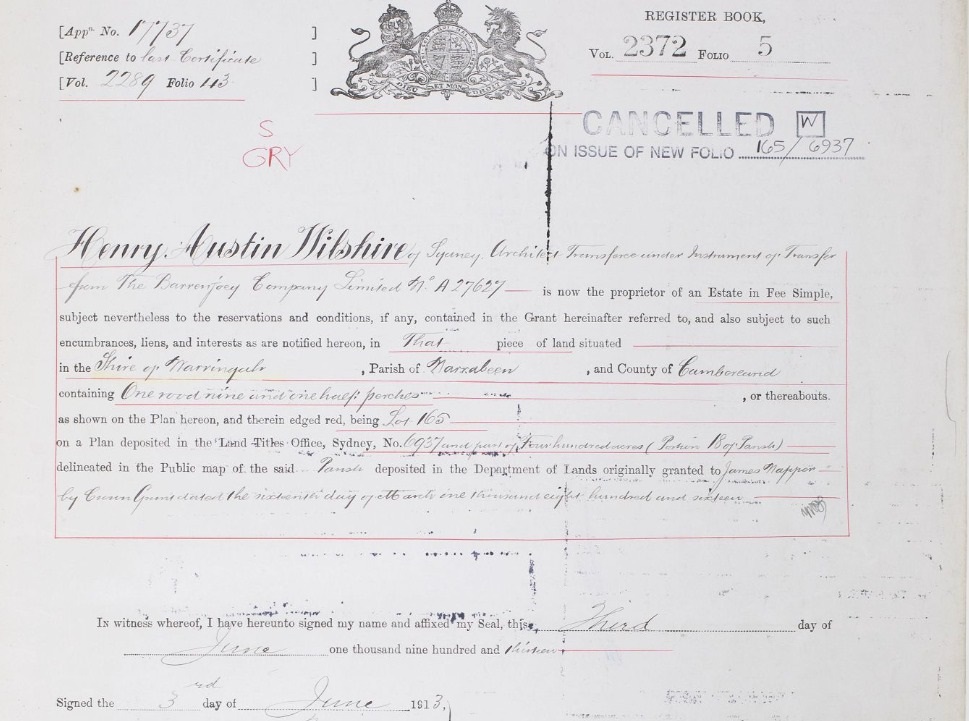 [Appn. No. 17737 ]
[Reference to last Certificate ]
[Vol. 2289 Folio 113 ]
DIEU ET MON DROIT
REGISTER BOOK,
VOL. 2372 FOLIO 5
CANCELLED W
ON ISSUE OF NEW FOLIO 165/6937
S
GRY
Henry Austin Wilshire of Sydney, Architect Transferee under Instrument of Transfer
from The Barrenjoey Company Limited No. A 27627 is now the proprietor of an Estate in Fee Simple,
subject nevertheless to the reservations and conditions, if any, contained in the Grant hereinafter referred to, and also subject to such
encumbrances, liens, and interests as are notified hereon, in That piece of land situated
in the Shire of Warringah , Parish of Narrabeen , and County of Cumberland
containing One rood nine and one half perches , or thereabouts.
as shown on the Plan hereon, and therein edged red, being Lot 165
on a Plan deposited in the Land Titles Office, Sydney, No. 6937 and part of Four hundred acres (Portion 18 of Parish)
delineated in the Public map of the said Parish deposited in the Department of Lands originally granted to James Napper
by Crown Grant dated the sixteenth day of March one thousand eight hundred and sixteen
In witness whereof, I have hereunto signed my name and affixed my Seal, this Third day of
June one thousand nine hundred and thirteen
Signed the 3rd day of June 1913,